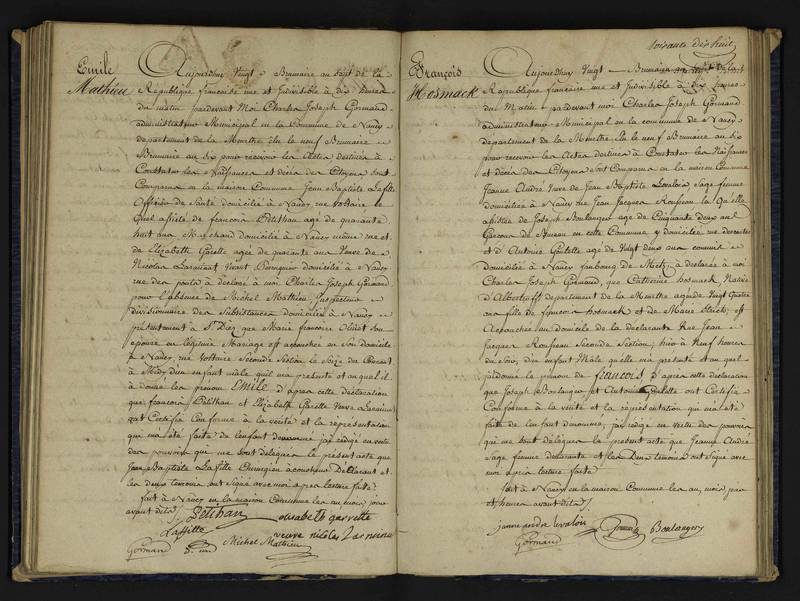 Emile
Mathieu
Aujourdhuy Vingt Brumaire an Sept de la
Republique francaise une et Indivisible à dix heures
du matin pardevant Moi Charles Joseph Gormand
administrateur Municipal en la Commune de Nancy
departement de la Meurthe élu le neuf Brumaire
Brumaire an six pour recevoir les Actes destinés à
Constater les Naissances et décès des Citoyens sont
Comparus en la maison Commune Jean Baptiste Lafitte
Officier de Santé domicilié à Nancy rue Voltaire le
quel assisté de francois Petithan agé de quarante
huit ans Marchand domicilié à Nancy même rue et
de Elizabeth Garette agée de quarante ans Veuve de
Nicolas vivant Bourgeois domicilié à Nancy
rue des ponts à déclaré à moi Charles Joseph Gormand
pour l'absence de Michel Mathieu Inspecteur
divisionnaire des Subsistances domicilié à Nancy
présentement à St Diez que Marie francoise Olivot son
épouse en légitime Mariage est accouchée en Son domicile
à Nancy rue Voltaire Seconde Section le Seize du Courant
à Midy d'un enfant male quil ma présenté et auquel il
à donné les prenom EMILE d'apres cette déclaration
que francois Petithan et Elizabeth Garette Veuve
ont Certifié Conforme à la verité et la representation
qui ma été faite de l'enfant denommé jai rédigé en vertu
des pouvoirs qui me sont délégués le présent acte que
Jean Baptiste Lafitte Chirurgien accoucheur Déclarant et
les deux temoins ont Signé avec moi apres lecture faite
fait à Nancy en la maison Commune les an, mois, jour
avant dits
Petithan
elisabeth garette
Laffitte
veuve nicolas
Gormand
Michel Mathieu
soixante dix huit
François
Hosmack
Aujourdhuy Vingt Brumaire an Sept de la
Republique francaise une et Indivisible à dix heures
du Matin pardevant moi Charles Joseph Gormand
administrateur Municipal en la commune de Nancy
departement de la Meurthe élu le neuf Brumaire an six
pour recevoir les Actes destinés à Constater les Naissances
et décès des Citoyens sont Comparus en la maison Commune
Jeanne André Veuve de Jean Baptiste Levalois Sage femme
domiciliée à Nancy rue Jean Jacques Rousseau Laquelle
assistée de Joseph Boulanger agé de Cinquante deux ans
Garcon de Bureau en cette Commune y domicilié rue
et d'Antoine agé de Vingt deux ans commis
domicilié à Nancy faubourg de Metz, à déclaré à moi
Charles Joseph Gormand, que Catherine hosmack Native
d'Albestroff departement de la Meurthe agée de Vingt quatre
ans fille de francois hosmack et de Marie est
accouchée au domicile de la déclarante Rue Jean
Jacques Rousseau Seconde Section, hier à Neuf heures
du Soir, d'un Enfant Male qu'elle ma présenté et au quel
elle donné le prenom de francois d'apres cette déclaration
que Joseph Boulanger et Antoine ont Certifié
Conforme à la verité et la réprésentation qui ma été
faite de l'enfant denommé, jai rédigé en vertu des pouvoirs
qui me sont délégués le présent acte que Jeanne André
Sage femme déclarante et les Deux temoins ont Signé avec
moi après lecture faite
fait à Nancy en la maison Commune les an, mois, jour
et heures avant dits
janne andre levalois
Boulanger
Gormand